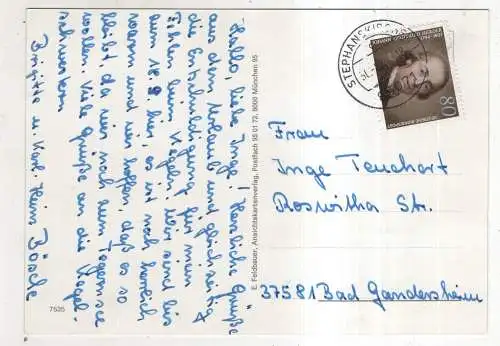 Hallo, liebe Inge! Herzliche Grüße
aus dem Urlaub und gleichzeitig
die Entschuldigung für mein
Fehlen beim Kegeln. Wir sind bis
zum 18.9. hier, es ist noch herrlich
warm und wir hoffen, daß es so
bleibt, da wir noch zum Tegernsee
wollen. Viele Grüße an die Kegel-
schwestern
Brigitte u. Karl-Heinz Bösche
7535
E. Feldbauer, Ansichtskartenverlag, Postfach 95 01 73, 8000 München 95
STEPHANSKIRCHEN
80
DEUTSCHE BUNDESPOST
Frau
Inge Teuchart
Roswitha Str.
37581 Bad Gandersheim